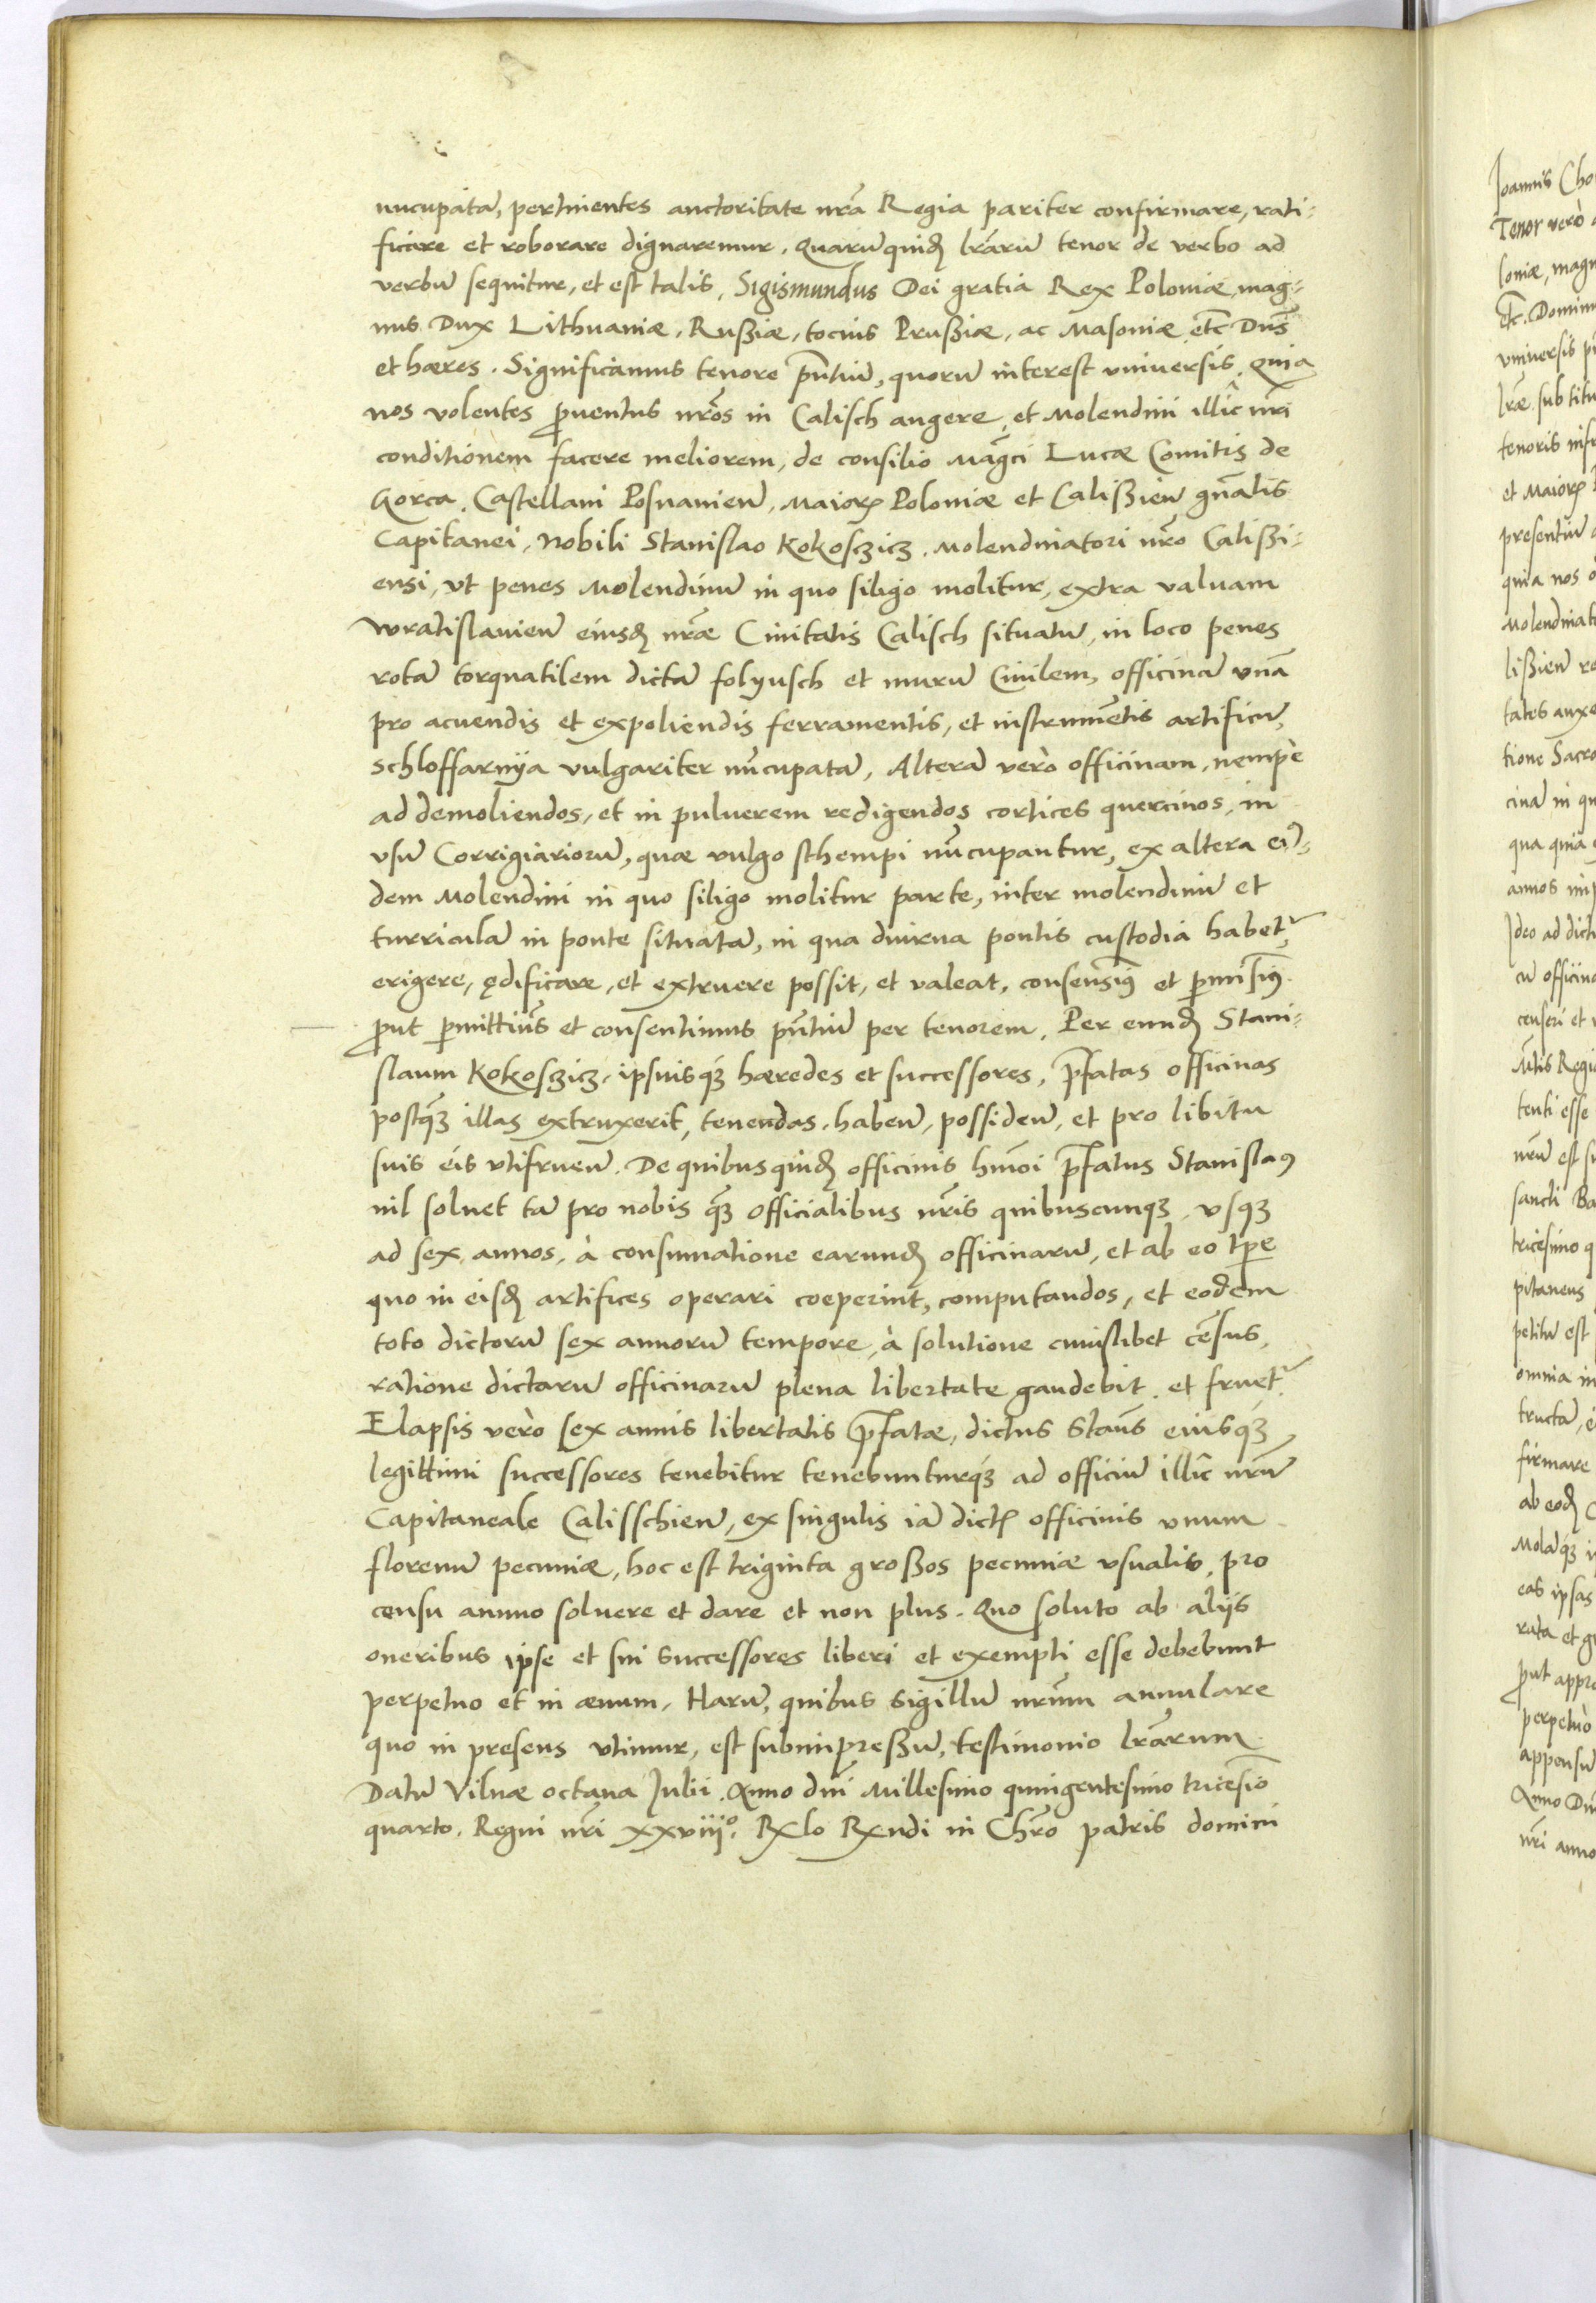 nucupatā, pertinentes auctoritate nr̄a Regia pariter confirmare, rati-
ficare et roborare dignaremur. Quarū quidꝫ lr̄arū tenor de verbo ad
verbū sequitur, et est talis. Sigismundus Dei gratia Rex Poloniæ, mag-
nus Dux Lithuaniæ, Rußiæ, tocius Prußiæ, ac Masoniæ etc̄ Dns̄
et hæres. Significamus tenore pn̄tiū, quorū interest vniuersis. Quia
nos volentes ꝓuentus nr̄os in Calisch augere, et Molendini illic̄ nr̄i
conditionem facere meliorem, de consilio Maḡci Lucæ Comitis de
Gorca, Castellani Posnanień, Maioꝝ Poloniæ et Calißień gn̄alis
Capitanei, Nobili Stanislao Kokosczicz, Molendinatori nr̄o Calißi-
ensi, vt penes Molendinū in quo siligo molitur, extra valuam
wratislauień eiusdꝫ nr̄æ Ciuitatis Calisch situatū, in loco penes
rotā torquatilem dictā folyusch et murū Ciuilem, officinā vnā
pro acuendis et expoliendis ferramentis, et instrumētis artificū,
schloffarnÿa vulgariter nūcupatā, Alterā verò officinam, nempè
ad demoliendos, et in puluerem redigendos cortices quercinos, in
vsū Corrigiariorū, quæ vulgo sthempi nūcupantur, ex altera eiū-
dem Molendini in quo siligo molitur parte, inter molendinū et
turriculā in ponte situatā, in qua diurna pontis custodia habetr̄
erigere, ędificare, et extruere possit, et valeat, consensim̄9 et ꝑmisim̄9
ꝓut ꝑmittim̄s et consentimus pn̄tiū per tenorem. Per eundꝫ Stani-
slaum Kokosczicz, ipsiusqꝫ hæredes et successores, p̄fatas officinas
postqꝫ illas extruxerit, tenendas, habeń, possideń, et pro libitu
suis eis vtifrueń. De quibus quidꝫ officinis hmōi p̄fatus Stanisla9
nil soluet tā pro nobis qꝫ officialibus nr̄is quibuscunqꝫ, vsqꝫ
ad sex annos, à consumatione earundꝫ officinarū, et ab eo tꝑe
quo in eisdꝫ artifices operari coeperint, computandos, et eodem
toto dictorū sex annorū tempore, à solutione cuiuslibet cēsus,
ratione dictarū officinarū plena libertate gaudebit, et fruetr̄
Elapsis verò sex annis libertatis p̄fatæ, dictus Stan̄s eiusqꝫ
legittimi successores tenebitur tenebunturqꝫ ad officiū illic̄ nr̄ū
Capitaneale Calisschień, ex singulis iā dictꝭ officinis vnum
florenū pecuniæ, hoc est triginta großos pecuniæ vsualis, pro
censu annuo soluere et dare et non plus. Quo soluto ab aliis
oneribus ipse et sui successores liberi et exempti esse debebunt
perpetuo et in æuum. Harū, quibus Sigillū nr̄um annulare
quo in presens vtimur, est subimpreßū, testimonio lr̄arum
Datū Vilnæ octaua Julii. Anno dn̄i Millesimo quingentesimo tricesio
quarto. Regni nr̄i xxviiiº. Rx̄lo Rx̄ndi in Chr̄o patris domini
Joannis Cho
Tenor verò
loniæ, magn
etc̄. Dominu
vniuersis
lr̄æ sub titu
tenoris
et Maioꝝ
presentiū
quia nos
Molendinat
lißień
tates
tione Sacra
cinā in qu
qua quia
annos
Ideo ad dict
cū officina
censeri et
Mt̄is Regi
tenti esse
nr̄ū est
sancti Ba
tricesimo q
pitaneus
petitū est
omnia in
tructā,
firmare
ab eodꝫ
Molāqꝫ
eas ipsas
rata et gr
ꝓut appro
perpetuò
appensū
Anno Dn̄
nr̄i anno